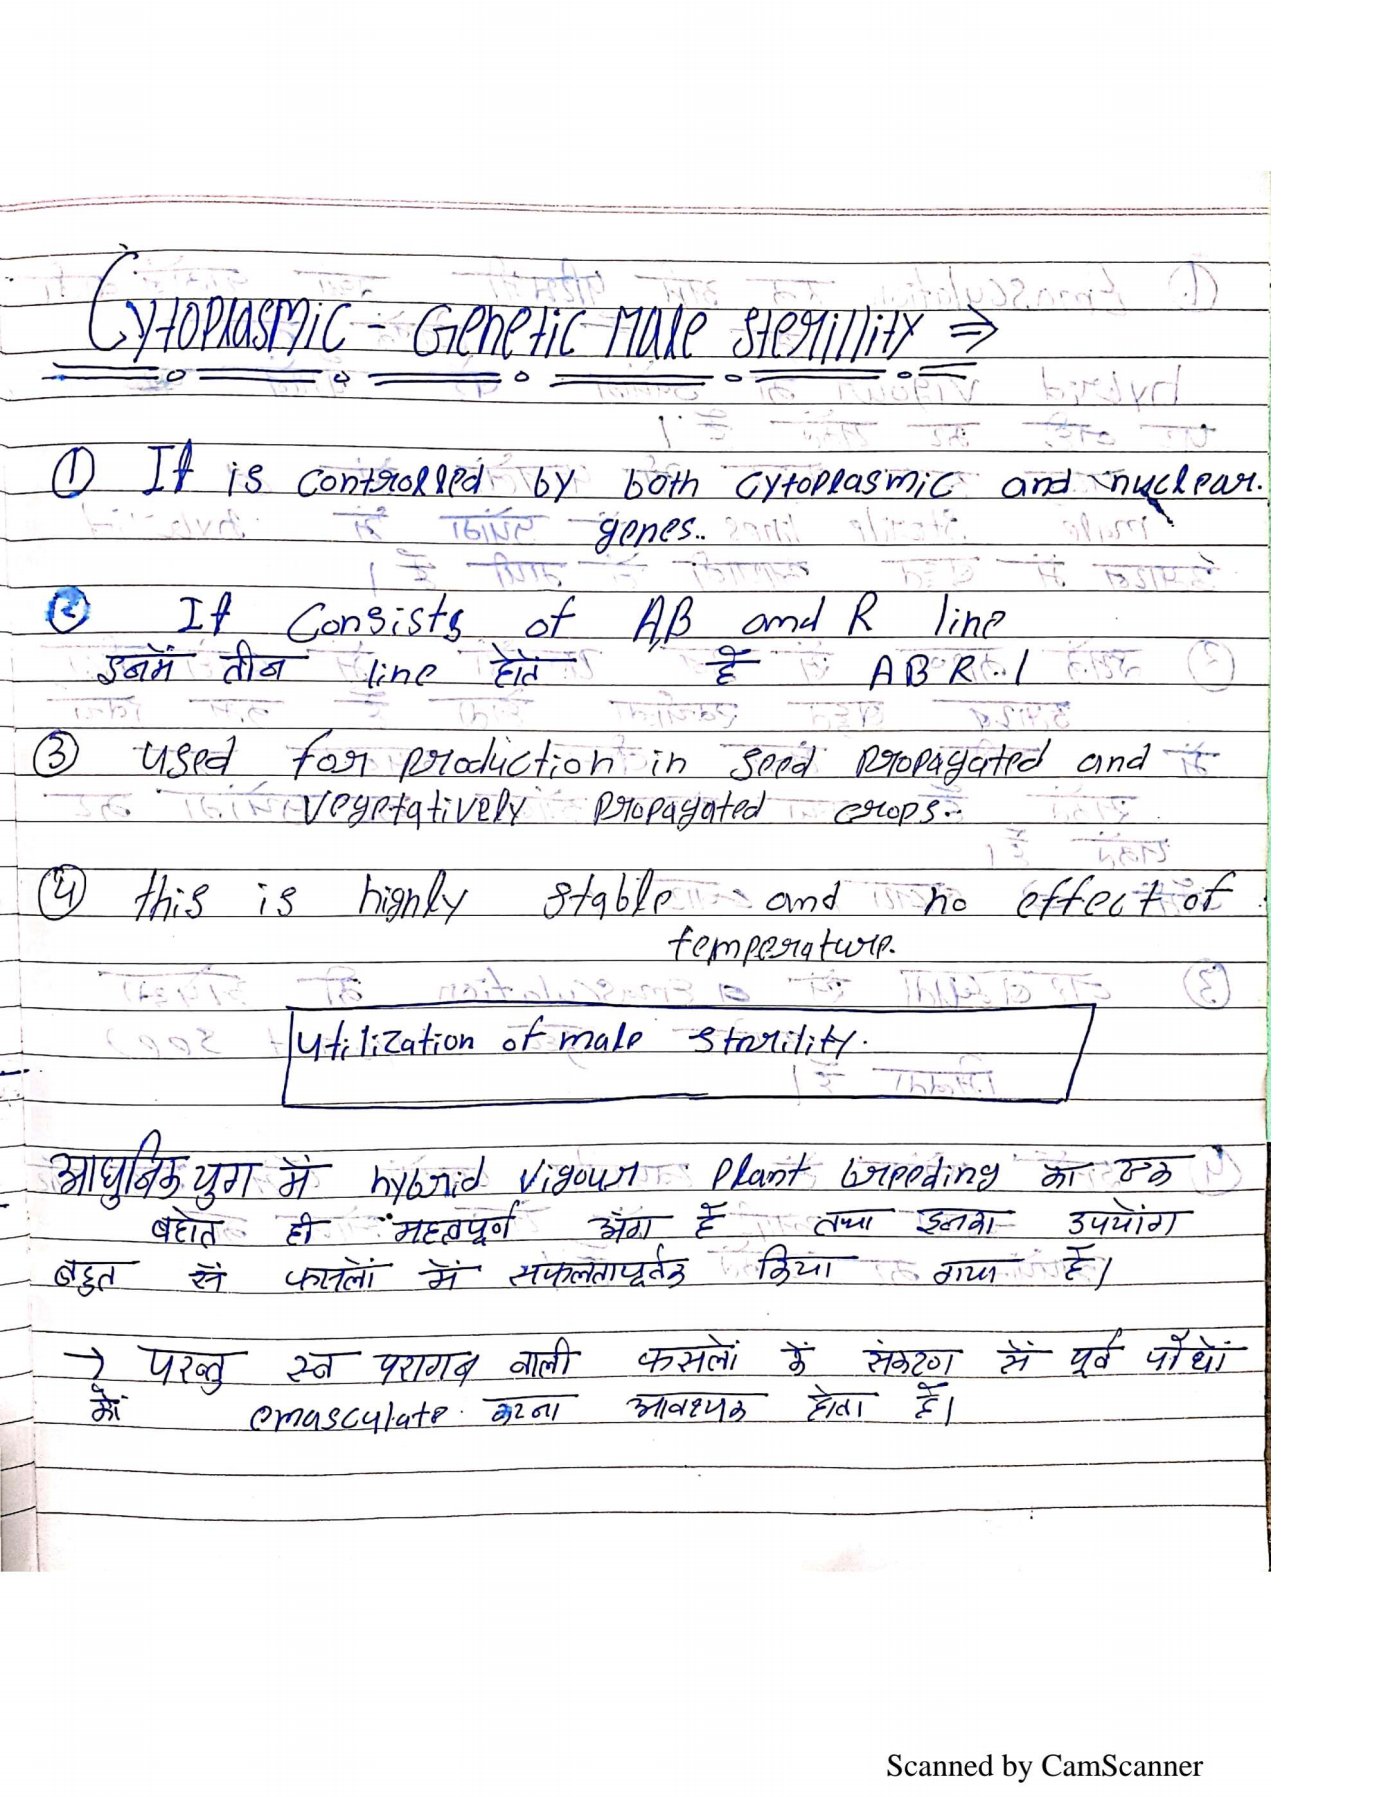 Cytoplasmic - Genetic Male Sterillity ⇒
① It is controlled by both cytoplasmic and nuclear.
genes..
② It Consists of A,B and R line
इनमें तीन line होते हैं A B R.।
③ used for production in seed propagated and
vegetatively propagated crops..
④ this is highly stable and no effect of
temperature.
Utilization of male Starility.
आधुनिक युग में hybrid vigour plant breeding का एक
बहोत ही महत्वपूर्ण अंग हैं तथा इनका उपयोंग
बहुत सें फासलों में सफलतापूर्वक किया गया हैं।
→ परन्तु स्व परागब वाली फसलों कें संकरण सें पूर्व पौंधों
कों emasculate. करना आवश्यक होता हैं।
Scanned by CamScanner